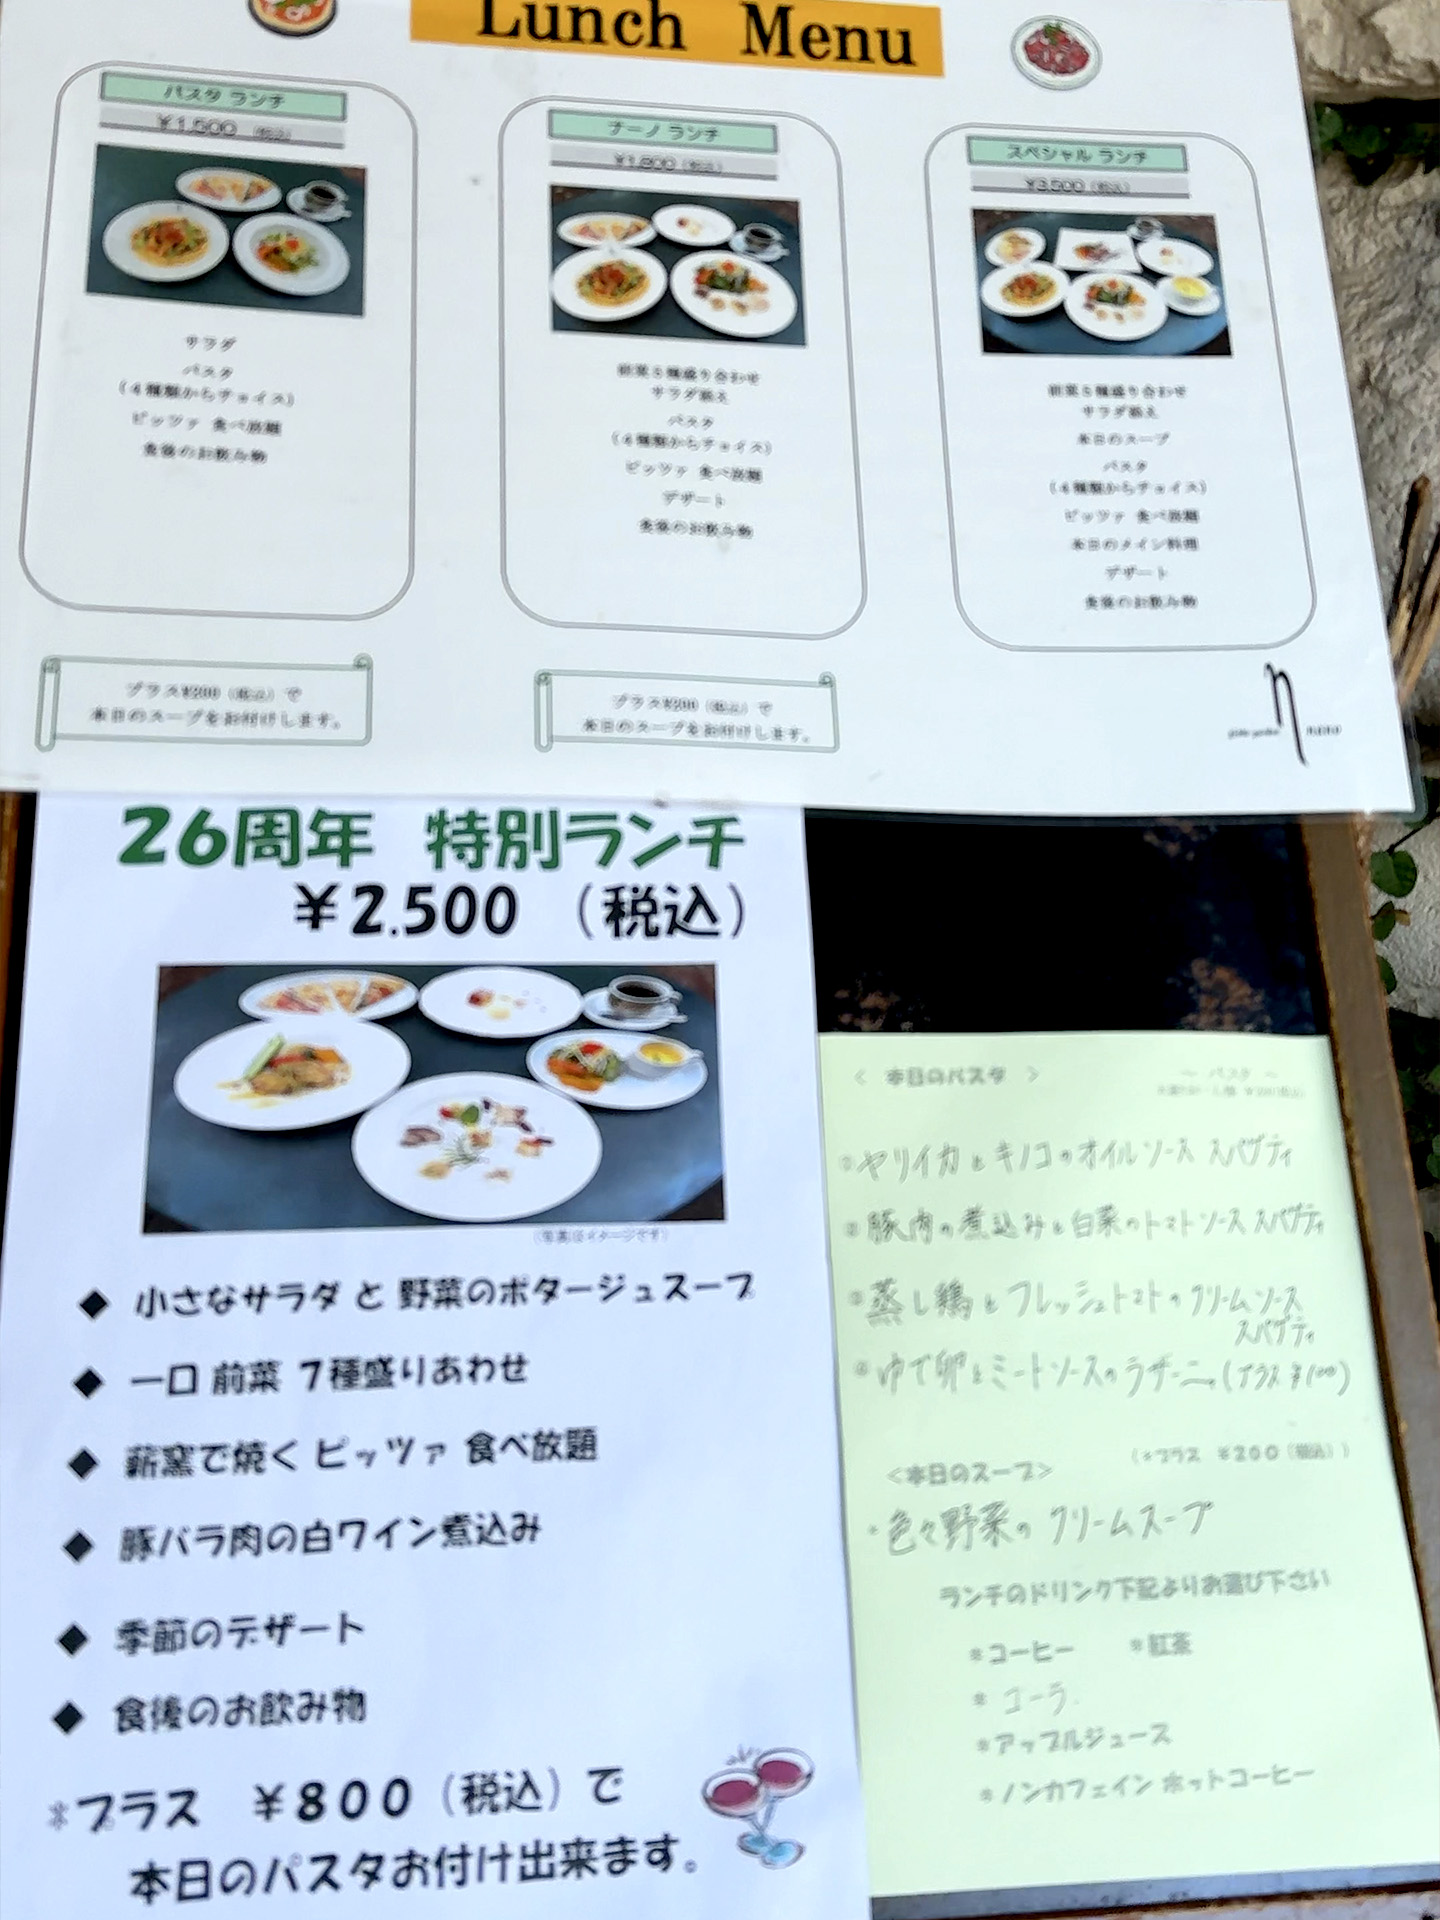 Lunch Menu
パスタ ランチ
¥1,500 (税込)
サラダ
パスタ
(4種類からチョイス)
ピッツァ 食べ放題
食後のお飲み物
プラス¥200(税込)で
本日のスープをお付けします。
ナーノ ランチ
¥1,800(税込)
前菜5種盛り合わせ
サラダ添え
パスタ
(4種類からチョイス)
ピッツァ 食べ放題
デザート
食後のお飲み物
プラス¥200(税込)で
本日のスープをお付けします。
スペシャル ランチ
¥3,500(税込)
前菜5種盛り合わせ
サラダ添え
本日のスープ
パスタ
(4種類からチョイス)
ピッツァ 食べ放題
本日のメイン料理
デザート
食後のお飲み物
nano
26周年 特別ランチ
¥2.500 (税込)
(写真はイメージです)
◆ 小さなサラダ と 野菜のポタージュスープ
◆ 一口 前菜 7種盛りあわせ
◆ 薪窯で焼く ピッツァ 食べ放題
◆ 豚バラ肉の白ワイン煮込み
◆ 季節のデザート
◆ 食後のお飲み物
*プラス ¥800(税込)で
本日のパスタお付け出来ます。
< 本日のパスタ >
~ パスタ ~
①ヤリイカとキノコのオイルソース スパゲティ
②豚肉の煮込みと白菜のトマトソース スパゲティ
③蒸し鶏とフレッシュトマトのクリームソース
スパゲティ
④ゆで卵とミートソースのラザーニャ(プラス¥100)
<本日のスープ> (*プラス ¥200(税込))
・色々野菜の クリームスープ
ランチのドリンク下記よりお選び下さい
*コーヒー *紅茶
*コーラ
*アップルジュース
*ノンカフェイン ホットコーヒー